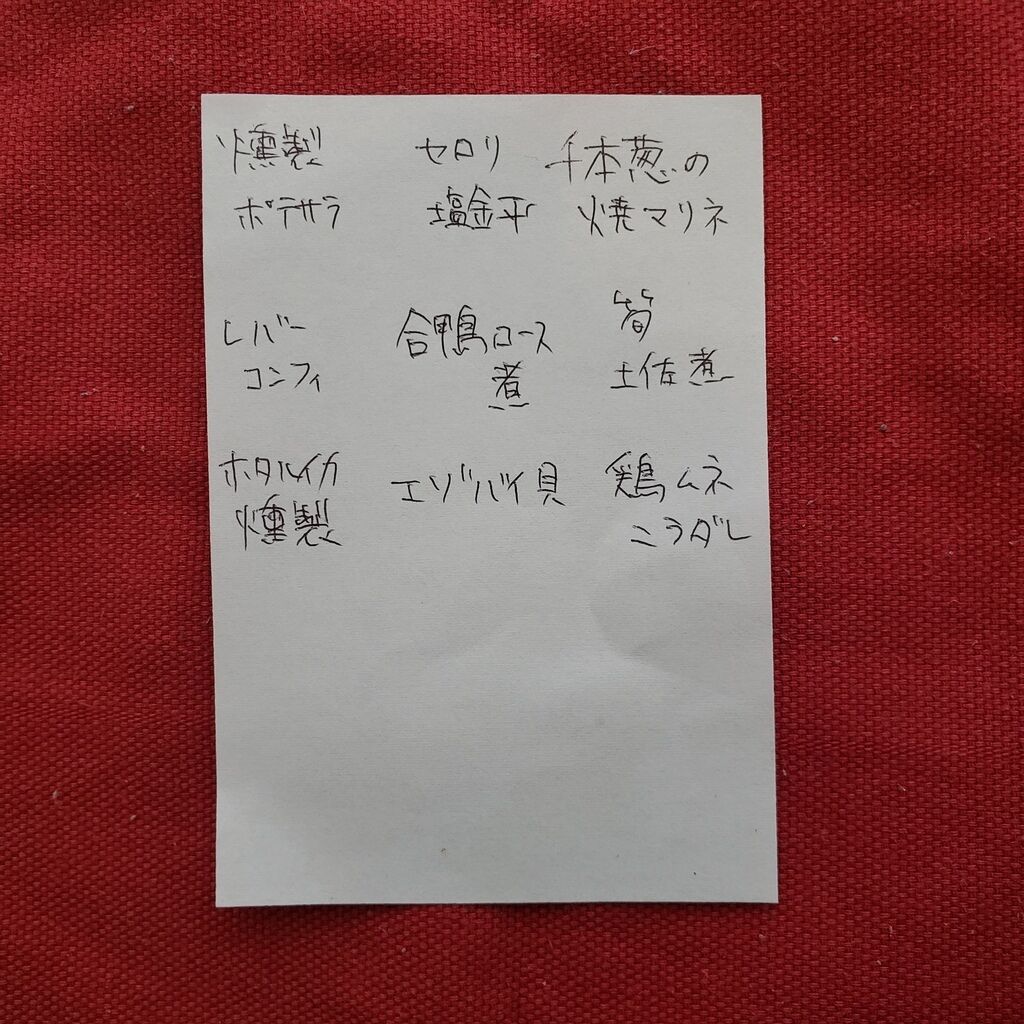 燻製
ポテサラ
セロリ
塩金平
千本葱の
焼マリネ
レバー
コンフィ
合鴨ロース
煮
筍
土佐煮
ホタルイカ
燻製
エゾバイ貝
鶏ムネ
ニラダレ